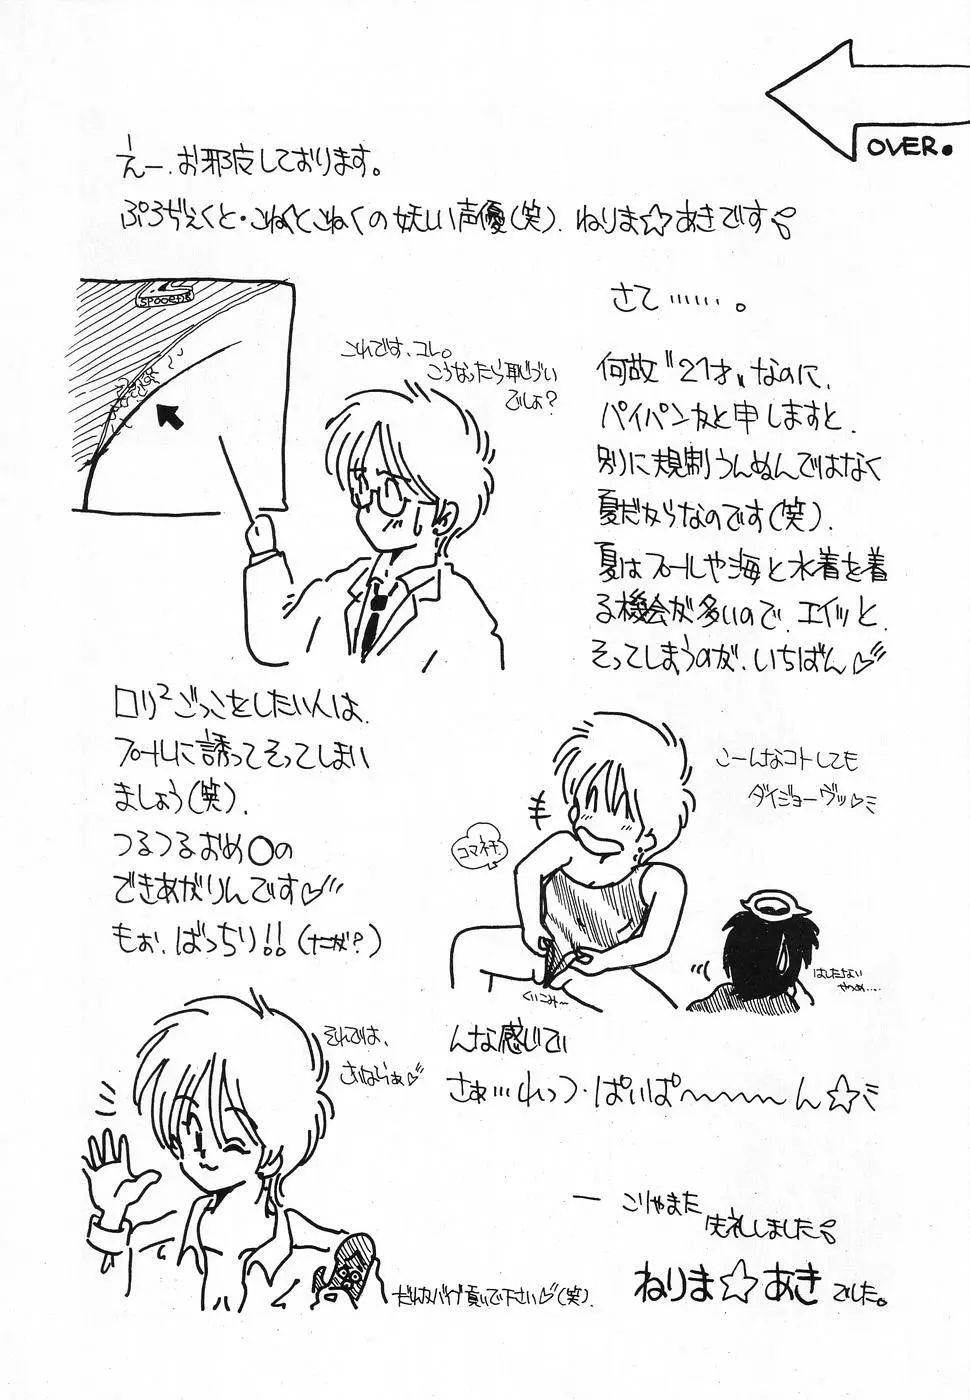 OVER.
えー、お邪魔しております。
ぷろぢぇくと・こねくとこねくの妖しい声優(笑)、ねりま☆あきです
さて……。
これでは、コレ。
こうなったら恥じづい
でしょ?
何故"21才"なのに、
パイパンかと申しますと、
別に規制うんぬんではなく
夏だからなのです(笑)。
夏はプールや海と水着を着
る機会が多いので、エイッと、
そってしまうのが、いちばん♡
ロリ²ごっこをしたい人は、
プールに誘ってそってしまい
ましょう(笑)。
つるつるおめ○の
できあがりんです♡
もぉ、ばっちり!!(たが?)
こーんなコトしても
ダイジョーヴッ♡ミ
コマネチ
くいこみ〜
はしたない
やつめ….
それでは、
さよならぁ♡
んな感じでい
さぁ…れっつ・ぱいぱ〜〜〜〜ん☆ミ
— こりゃまた
失礼しました
ねりま☆あきでした。
だれかバイブ買いで下さい♡(笑)。